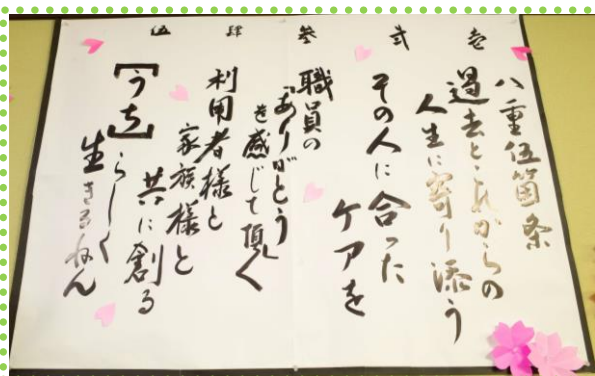 八重伍箇条
壱
過去とこれからの
人生に寄り添う
弐
その人に合った
ケアを
参
職員の
「ありがとう」
を感じて頂く
肆
利用者様と
家族様と
共に創る
伍
【うち】らしく
生きるねん